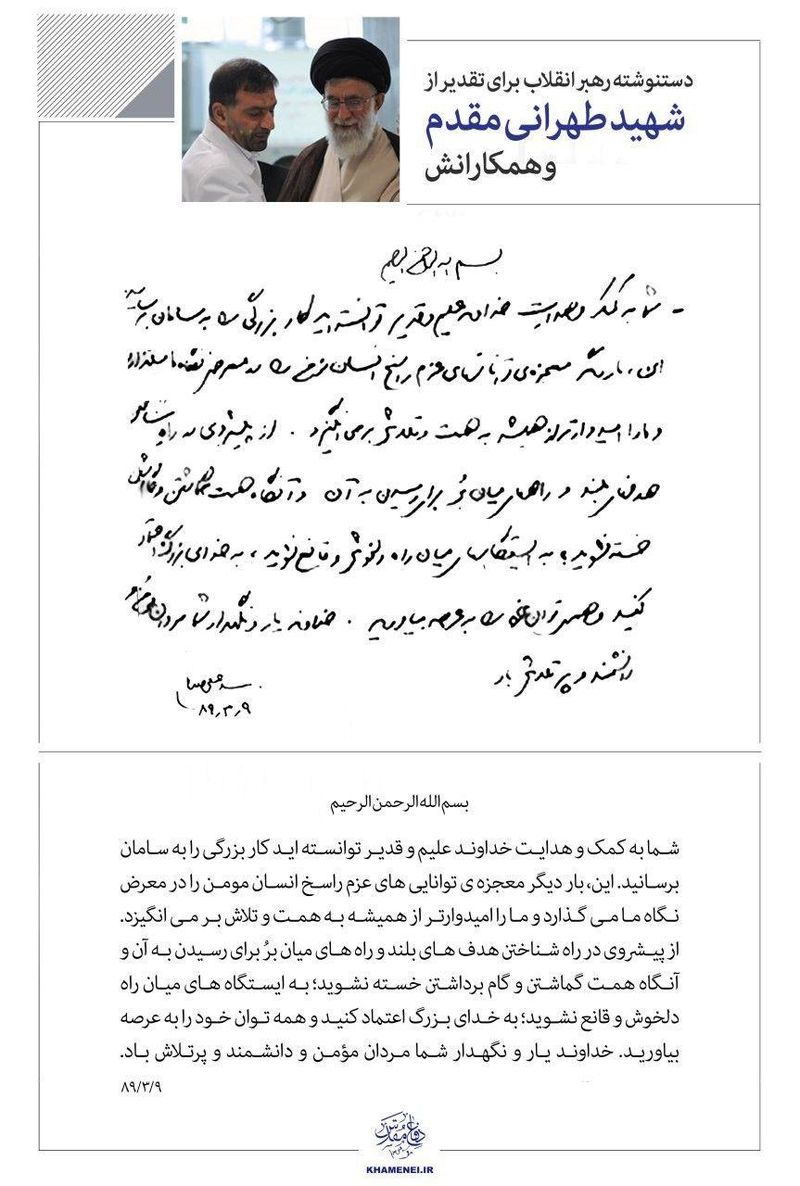 دستنوشته رهبر انقلاب برای تقدیر از
شهید طهرانی مقدم
و همکارانش
بسم الله الرحمن الرحیم
- شما به کمک و هدایت خداوند علیم و قدیر توانسته اید کار بزرگی را به سامان برسانید
این، بار دیگر معجزه‌ی توانائیهای عزم راسخ انسان مؤمن را در معرض نگاه ما میگذارد
و ما را امیدوارتر از همیشه به همت و تلاش بر می انگیزد . از پیشروی در راه شناختن
هدفهای بلند و راههای میان بُر برای رسیدن به آن و آنگاه همت گماشتن و گام برداشتن
خسته نشوید؛ به ایستگاههای میان راه دلخوش و قانع نشوید، به خدای بزرگ اعتماد
کنید و همه‌ی توان خود را به عرصه بیاورید . خداوند یار و نگهدار شما مردان مؤمن و
دانشمند و پرتلاش باد
سید علی خامنه‌ای
۸۹٫۳٫۹
بسم الله الرحمن الرحیم
شما به کمک و هدایت خداوند علیم و قدیر توانسته اید کار بزرگی را به سامان
برسانید. این، بار دیگر معجزه ی توانایی های عزم راسخ انسان مومن را در معرض
نگاه ما می گذارد و ما را امیدوارتر از همیشه به همت و تلاش بر می انگیزد.
از پیشروی در راه شناختن هدف های بلند و راه های میان برُ برای رسیدن به آن و
آنگاه همت گماشتن و گام برداشتن خسته نشوید؛ به ایستگاه های میان راه
دلخوش و قانع نشوید؛ به خدای بزرگ اعتماد کنید و همه توان خود را به عرصه
بیاورید. خداوند یار و نگهدار شما مردان مؤمن و دانشمند و پرتلاش باد.
۸۹/۳/۹
دفاع مقدس
KHAMENEI.IR